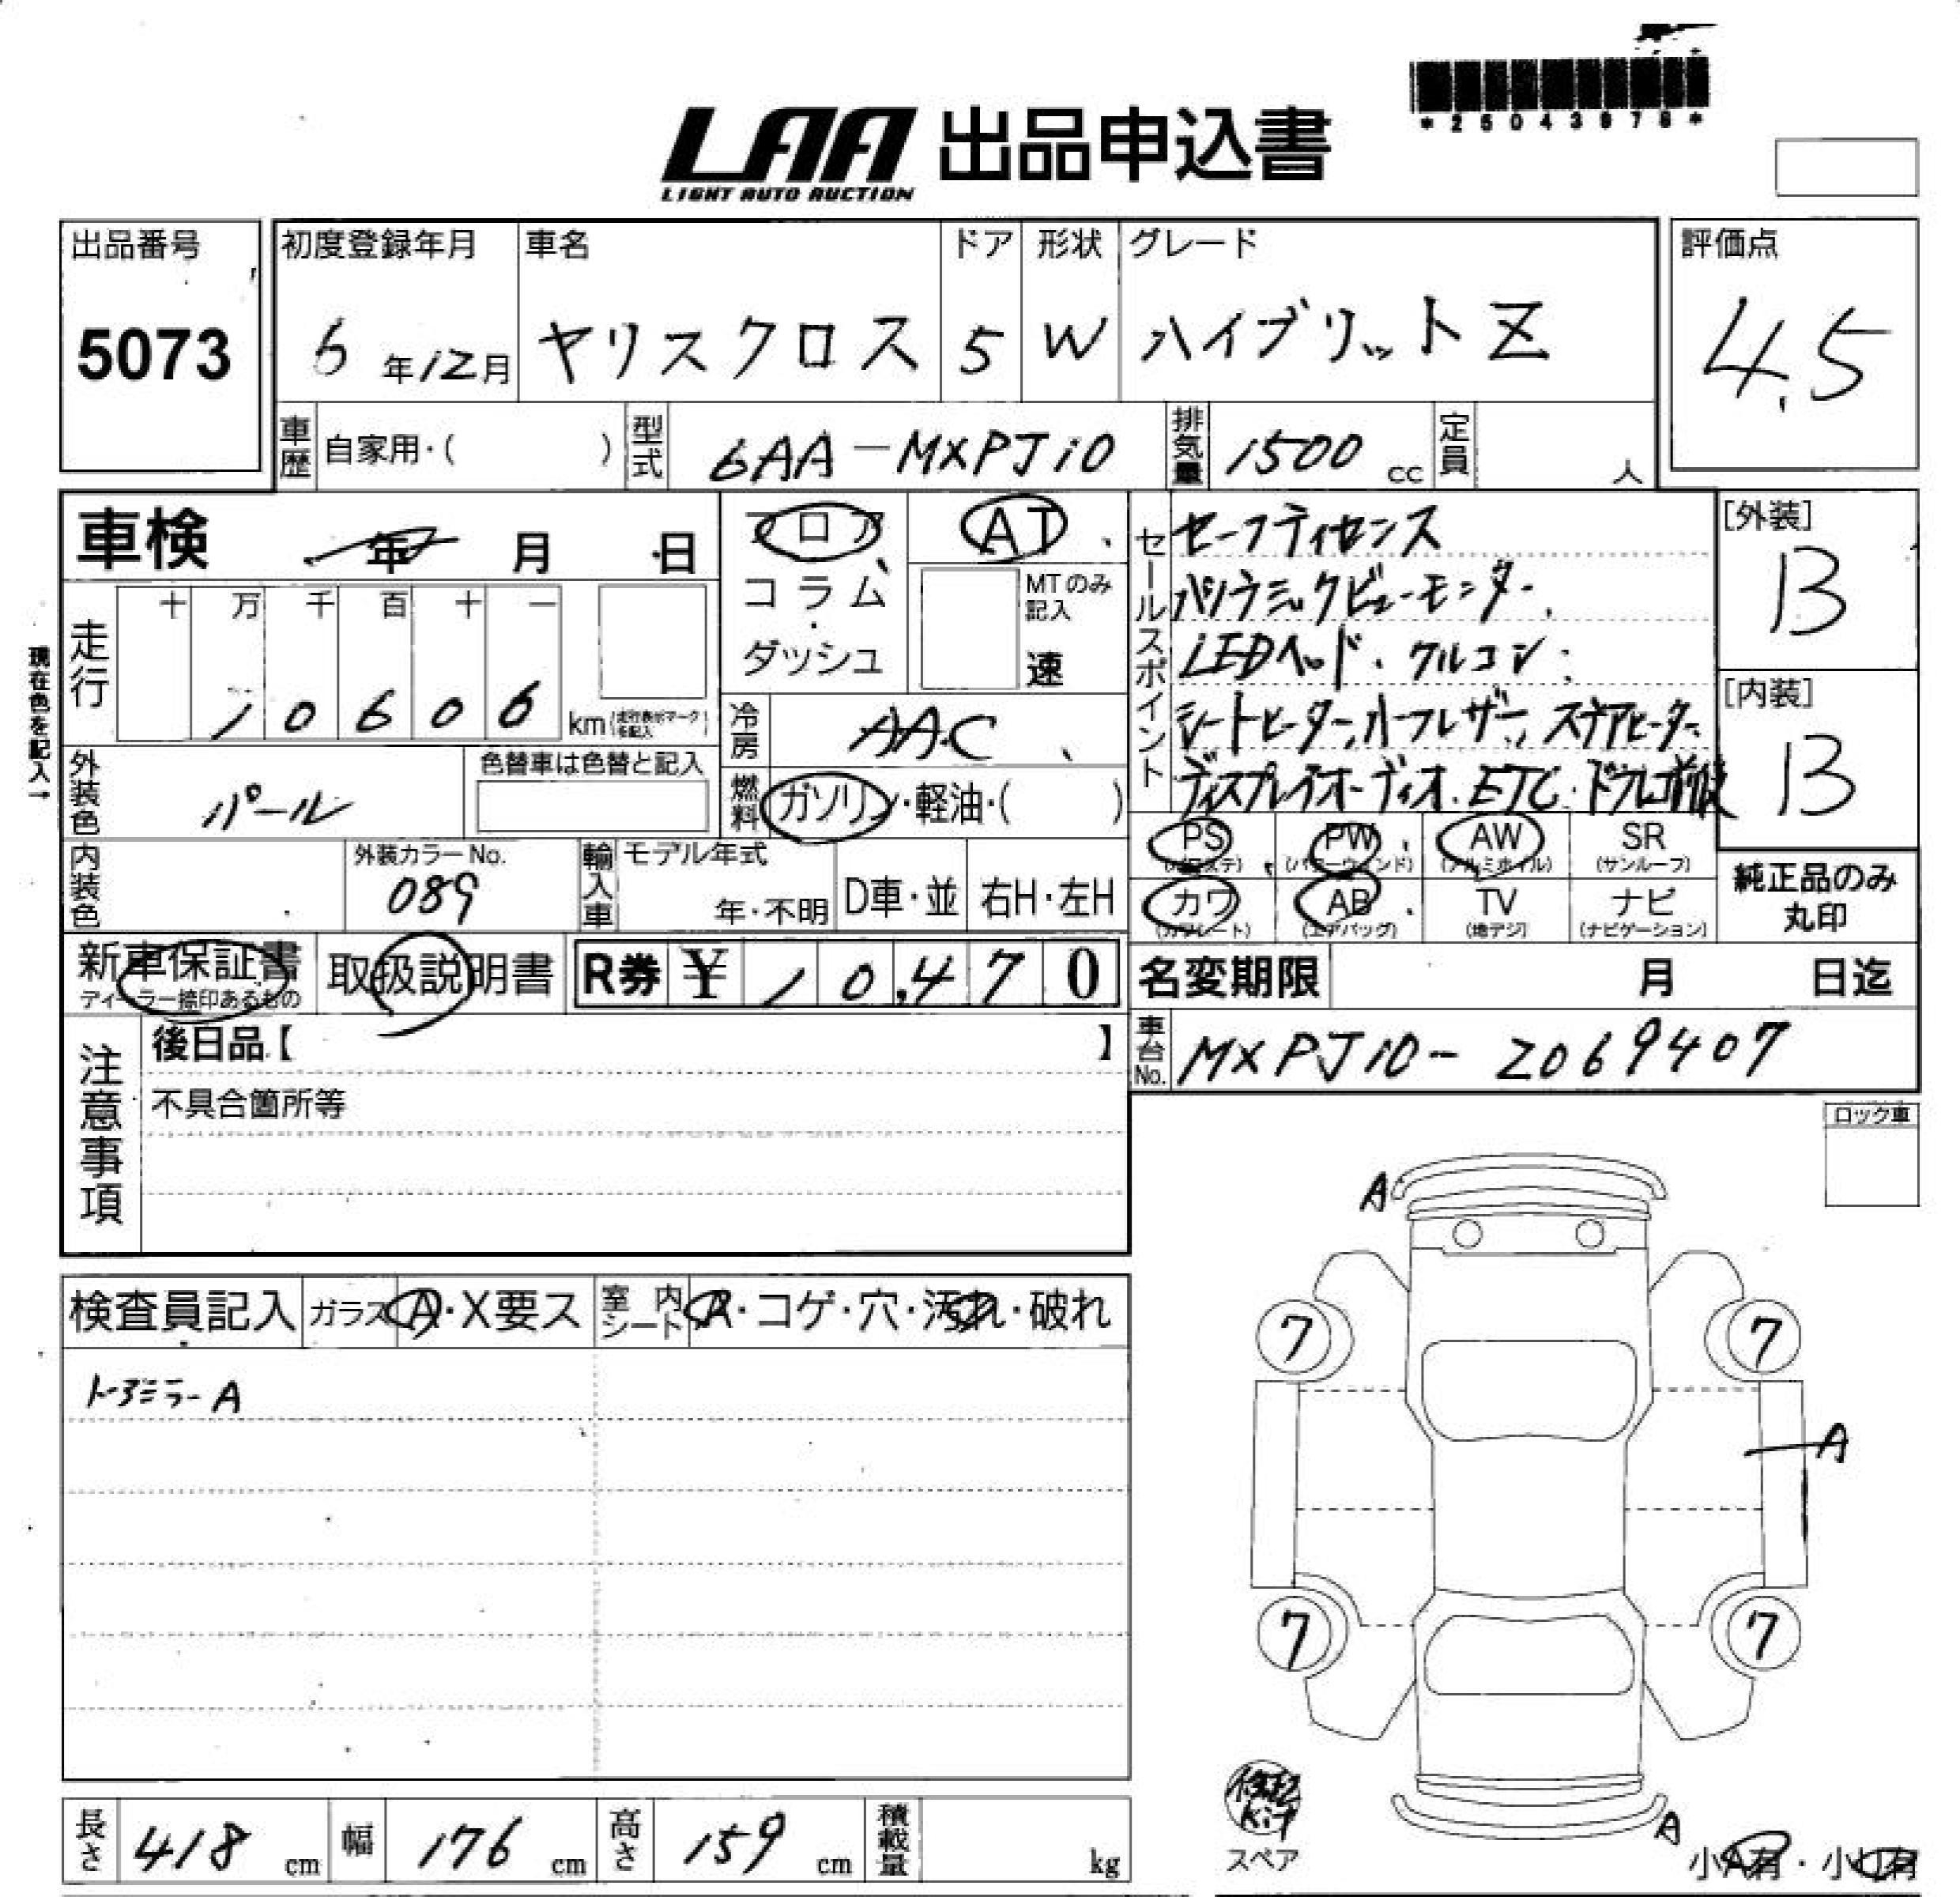 *25043976*
LAA 出品申込書
LIGHT AUTO AUCTION
出品番号
5073
初度登録年月
6年12月
車名
ヤリスクロス
ドア
5
形状
W
グレード
ハイブリットZ
評価点
4.5
車歴 自家用・( )
型式 6AA-MXPJ10
排気量 1500 cc
定員 人
車検 年 月 日
フロア
コラム
・
ダッシュ
AT
MTのみ記入
速
セールスポイント
セーフティセンス
パノラミックビューモニター
LEDヘッド、クルコン
シートヒーター、ハーフレザー、ステアヒーター
ディスプレイオーディオ、ETC・ドラレコ前後
[外装]
B
[内装]
B
現在色を記入→
走行
十 万 千 百 十 一
10606 km (走行表示マークを記入)
冷房 AAC
外装色 パール
色替車は色替と記入
燃料 ガソリン・軽油・( )
内装色
外装カラーNo.
089
輸入車
モデル年式
年・不明
D車・並
右H・左H
PS (パワステ)
PW (パワーウィンド)
AW (アルミホイル)
SR (サンルーフ)
カワ (カワシート)
AB (エアバッグ)
TV (地デジ)
ナビ (ナビゲーション)
純正品のみ
丸印
新車保証書
ディーラー捺印あるもの
取扱説明書
R券 ¥ 10,470
名変期限 月 日迄
注意事項
後日品【 】
不具合箇所等
車台No. MXPJ10-2069407
ロック車
検査員記入
ガラス A・X要ス
室内シート A・コゲ・穴・汚れ・破れ
トアミラーA
A
7
7
A
7
7
A
修理
Kit
スペア
小A有・小U有
長さ 418 cm
幅 176 cm
高さ 159 cm
積載量 kg